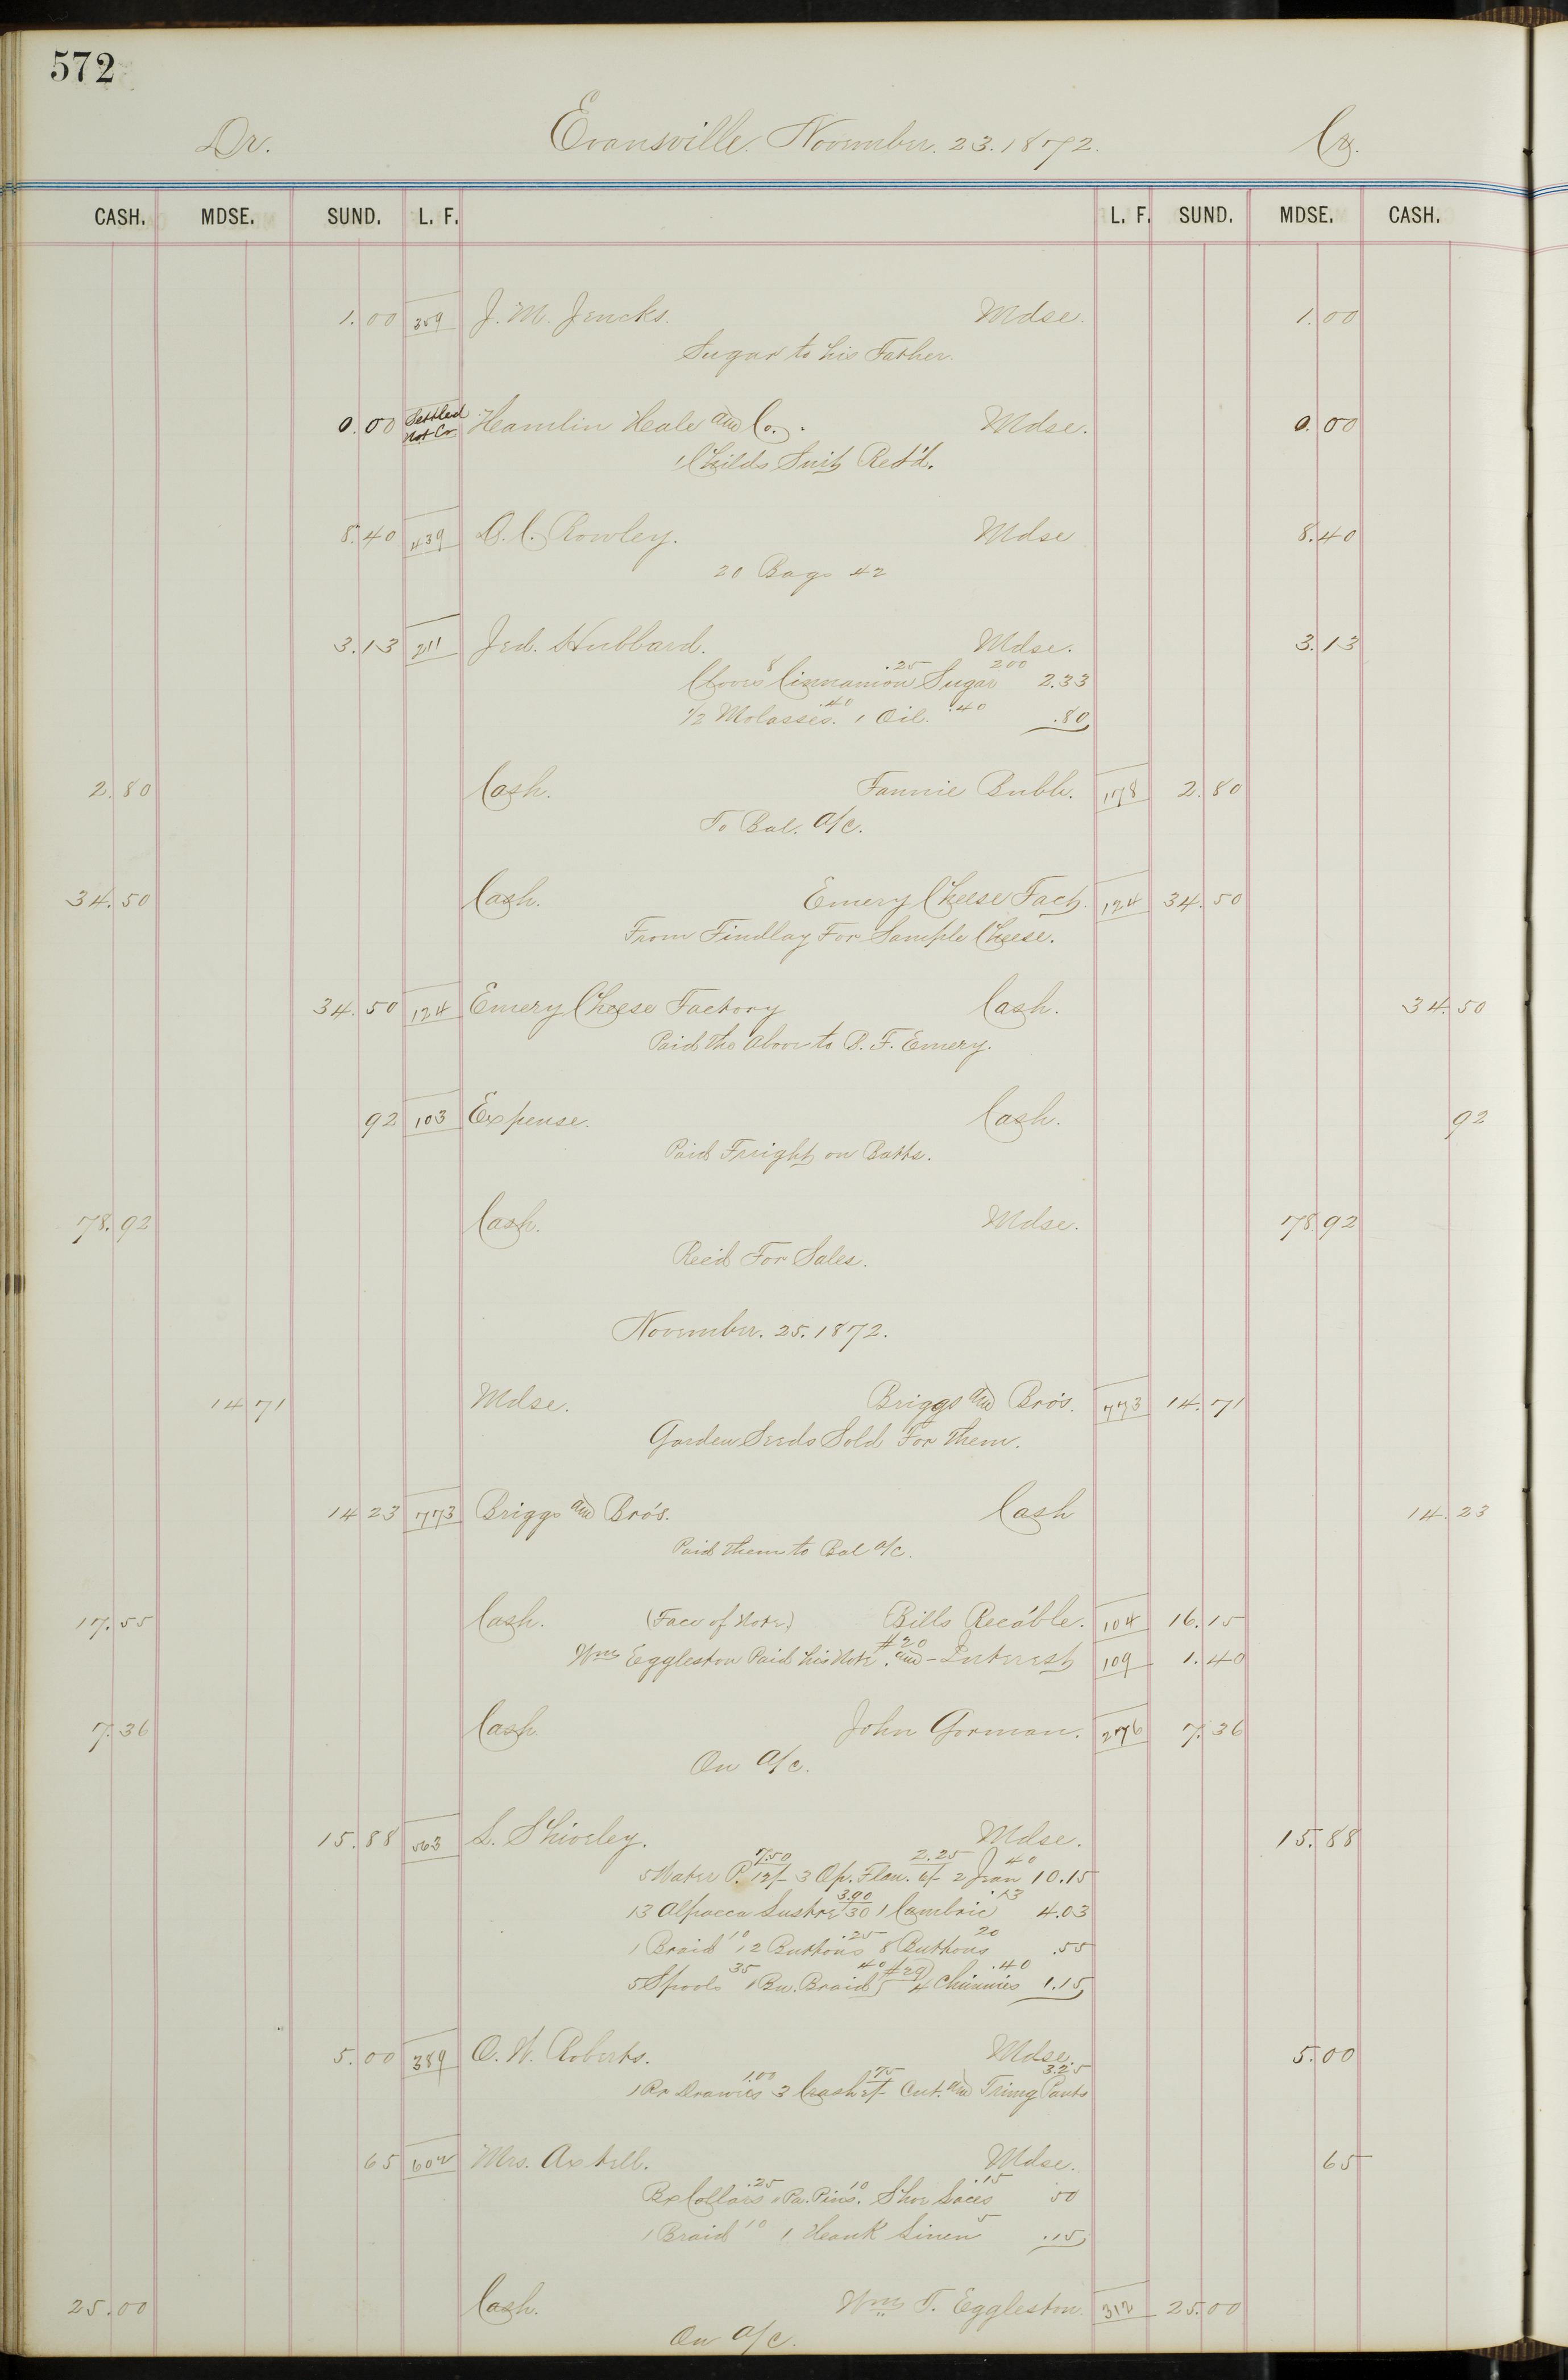 572
Dr. Evansville. November. 23. 1872. Cr.
CASH. MDSE. SUND. L. F. L. F. SUND. MDSE. CASH.
1.00 359 J. M. Jencks. Mdse. 1.00
Sugar to his Father.
0.00 Settled Not Co Hamlin Hale and Co. Mdse. 0.00
1 Childs Suit Ret'd.
8.40 439 D. C. Rowley. Mdse 8.40
20 Bags 42
3.13 211 Jed. Hubbard. Mdse. 3.13
Cloves 8 Cinnamon .25 Sugar 200 2.33
1/2 Molasses. .40 1 Oil. .40 .80
2.80 Cash. Fannie Bubb. 178 2.80
To Bal. a/c.
34.50 Cash. Emery Cheese Fact. 124 34.50
From Findlay For Sample Cheese.
34.50 124 Emery Cheese Factory Cash. 34.50
Paid the Above to B. F. Emery.
92 103 Expense. Cash. 92
Paid Freight on Batts.
78.92 Cash. Mdse. 78.92
Rec'd For Sales.
November. 25. 1872.
14 71 Mdse. Briggs and Bro's. 773 14.71
Garden Seeds Sold For Them.
14 23 773 Briggs and Bro's. Cash 14.23
Paid Them to Bal a/c.
17.55 Cash. (Face of Note) Bills Rec'able. 104 16.15
Wm Eggleston Paid his Note #20 and - Interest 109 1.40
7.36 Cash John Gorman. 276 7.36
On a/c.
15.88 563 L. Shiveley. Mdse. 15.88
5 Water P. 7.50 12/- 3 Op. Flan. 2.25 6/- 2 Jean 40 10.15
13 Alpacca Lustre 3.90 30 1 Cambric .13 4.03
1 Braid 10 12 Buttons .25 8 Buttons 20 .55
5 Spools 35 1 Bu. Braid 40 #29 4 Chimnies .40 1.15
5.00 389 O. W. Roberts. Mdse. 5.00
1 Pr Drawers 1.00 3 Crash 75 2/- Cut. and Trimg Pants 3.25
65 602 Mrs. Axtell. Mdse. 65
Bx Collars .25 1 Pa. Pins. 10 Shoe Laces .15 50
1 Braid 10 1 Heank Linen 5 .15
25.00 Cash. Wm T. Eggleston. 312 25.00
On a/c.